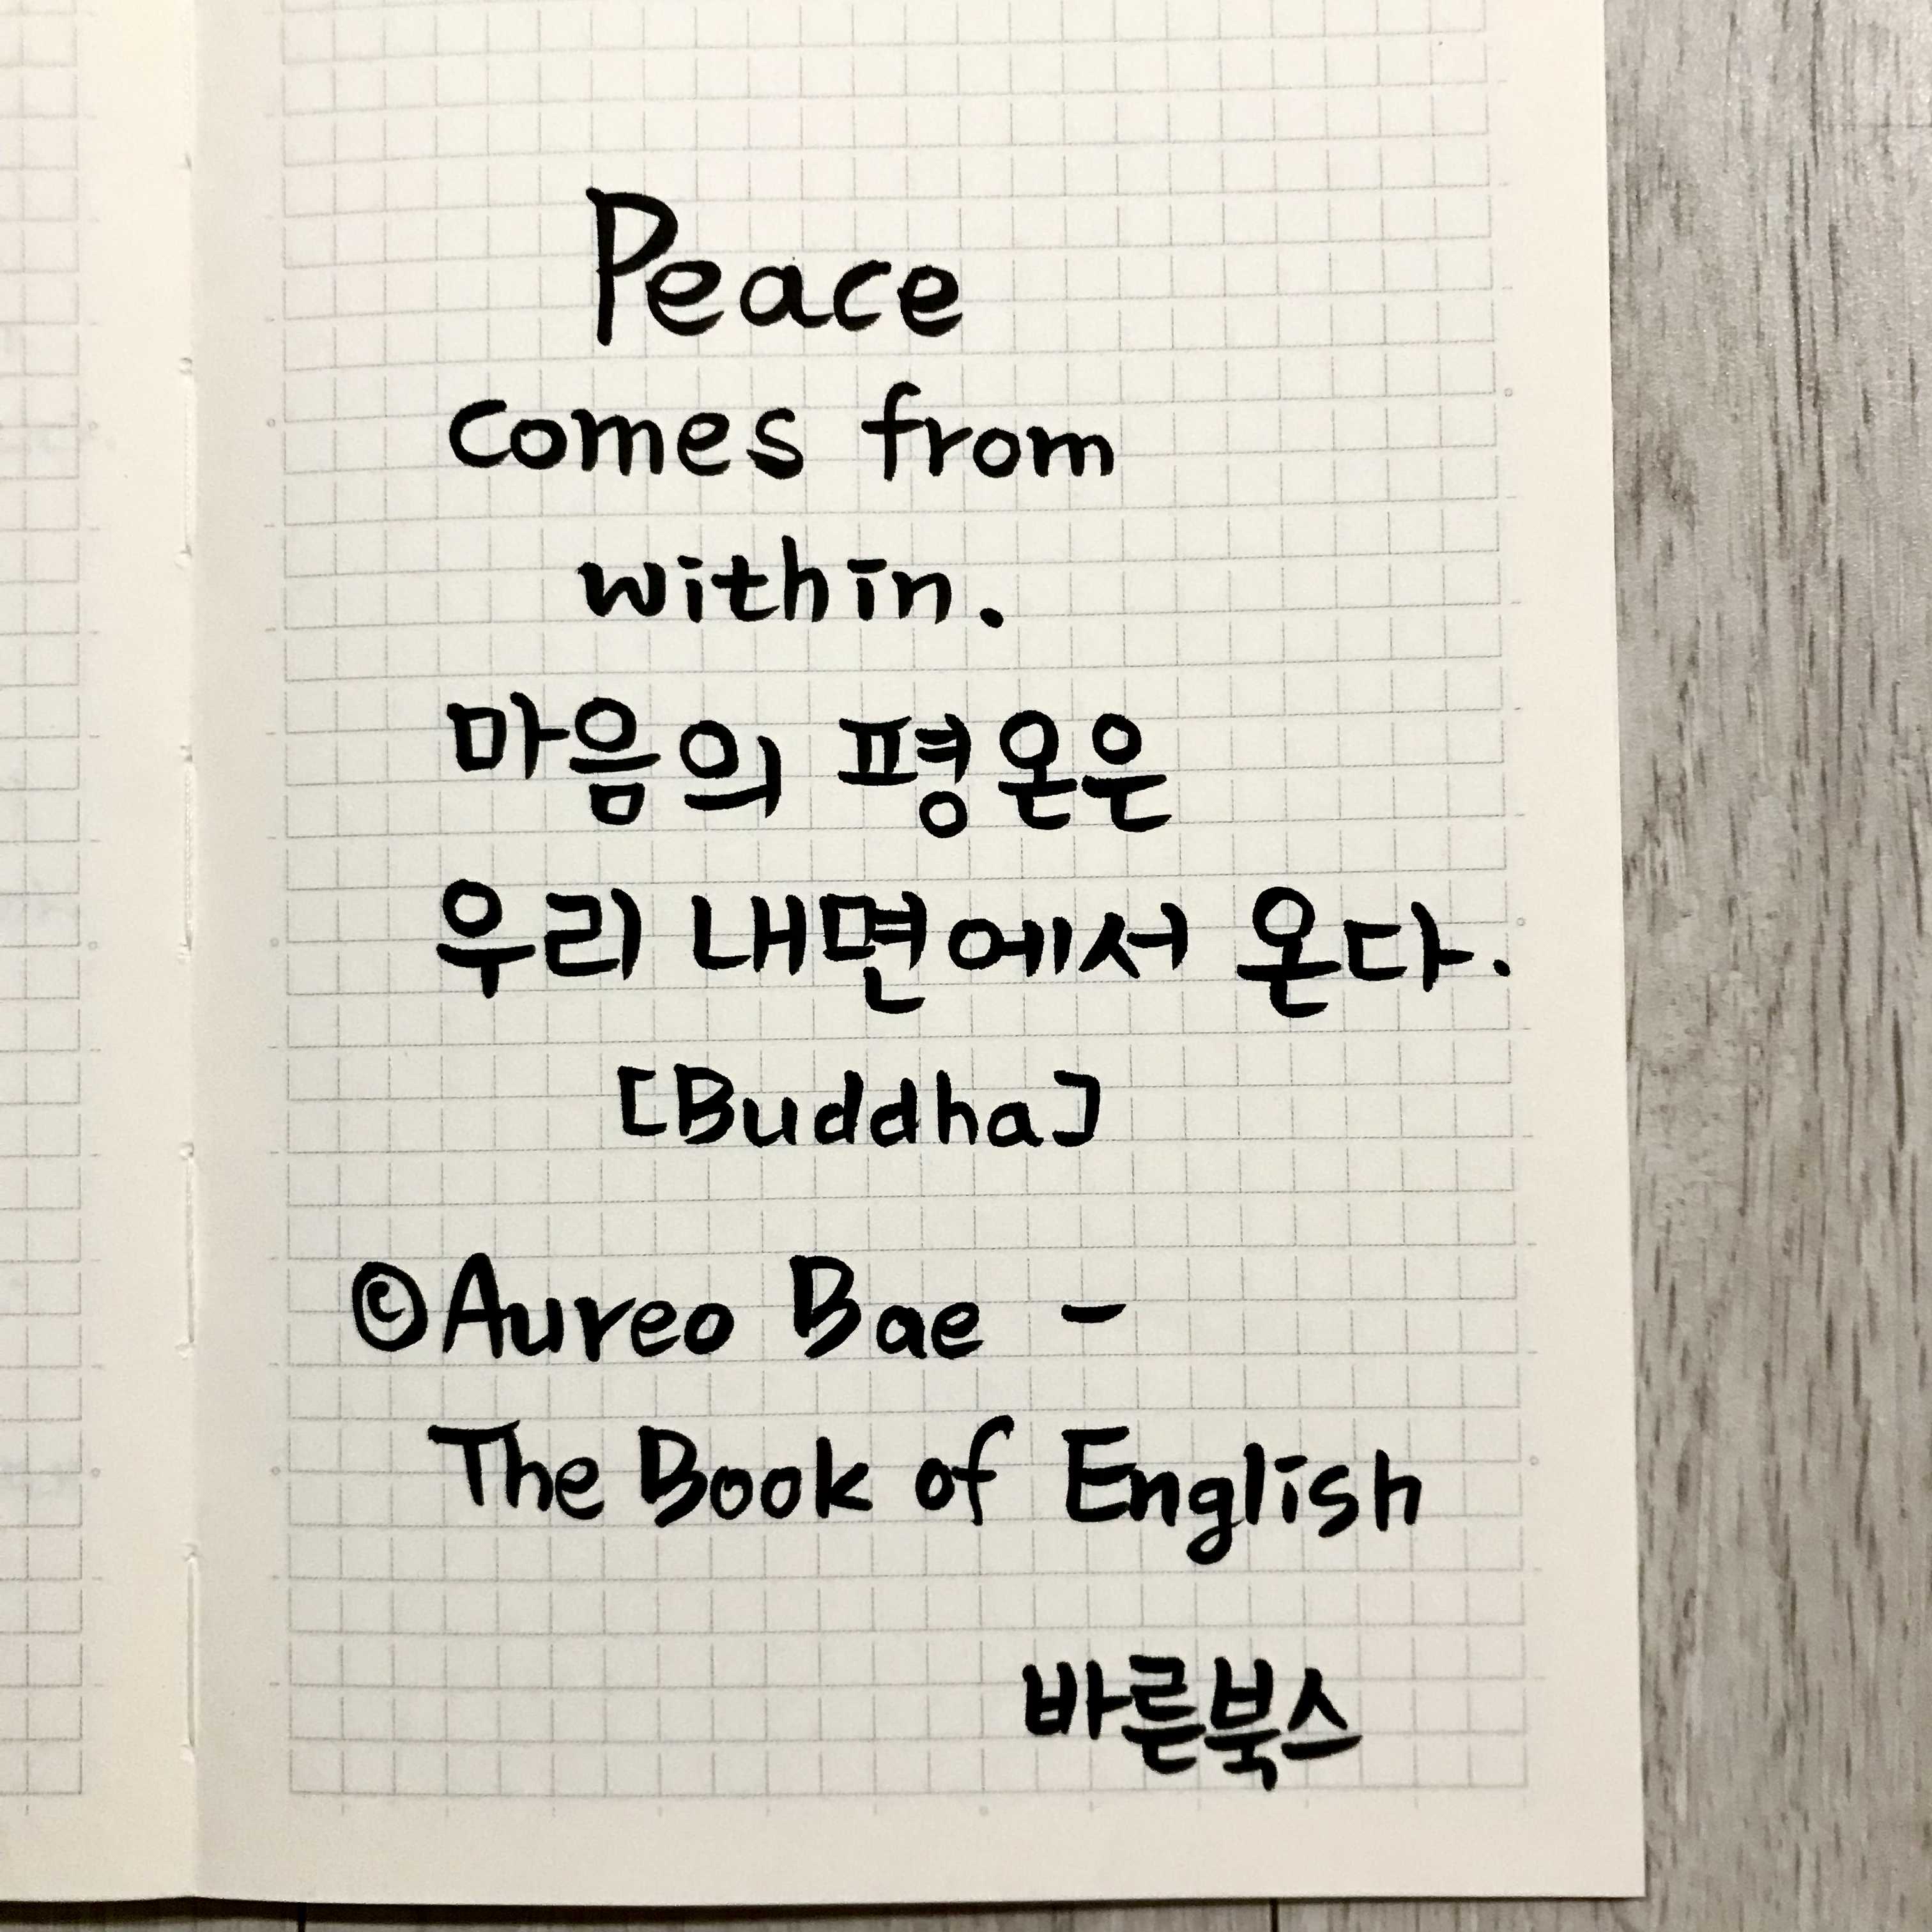 Peace
comes from
within.
마음의 평온은
우리 내면에서 온다.
[Buddha]
©Aureo Bae -
The Book of English
바른북스